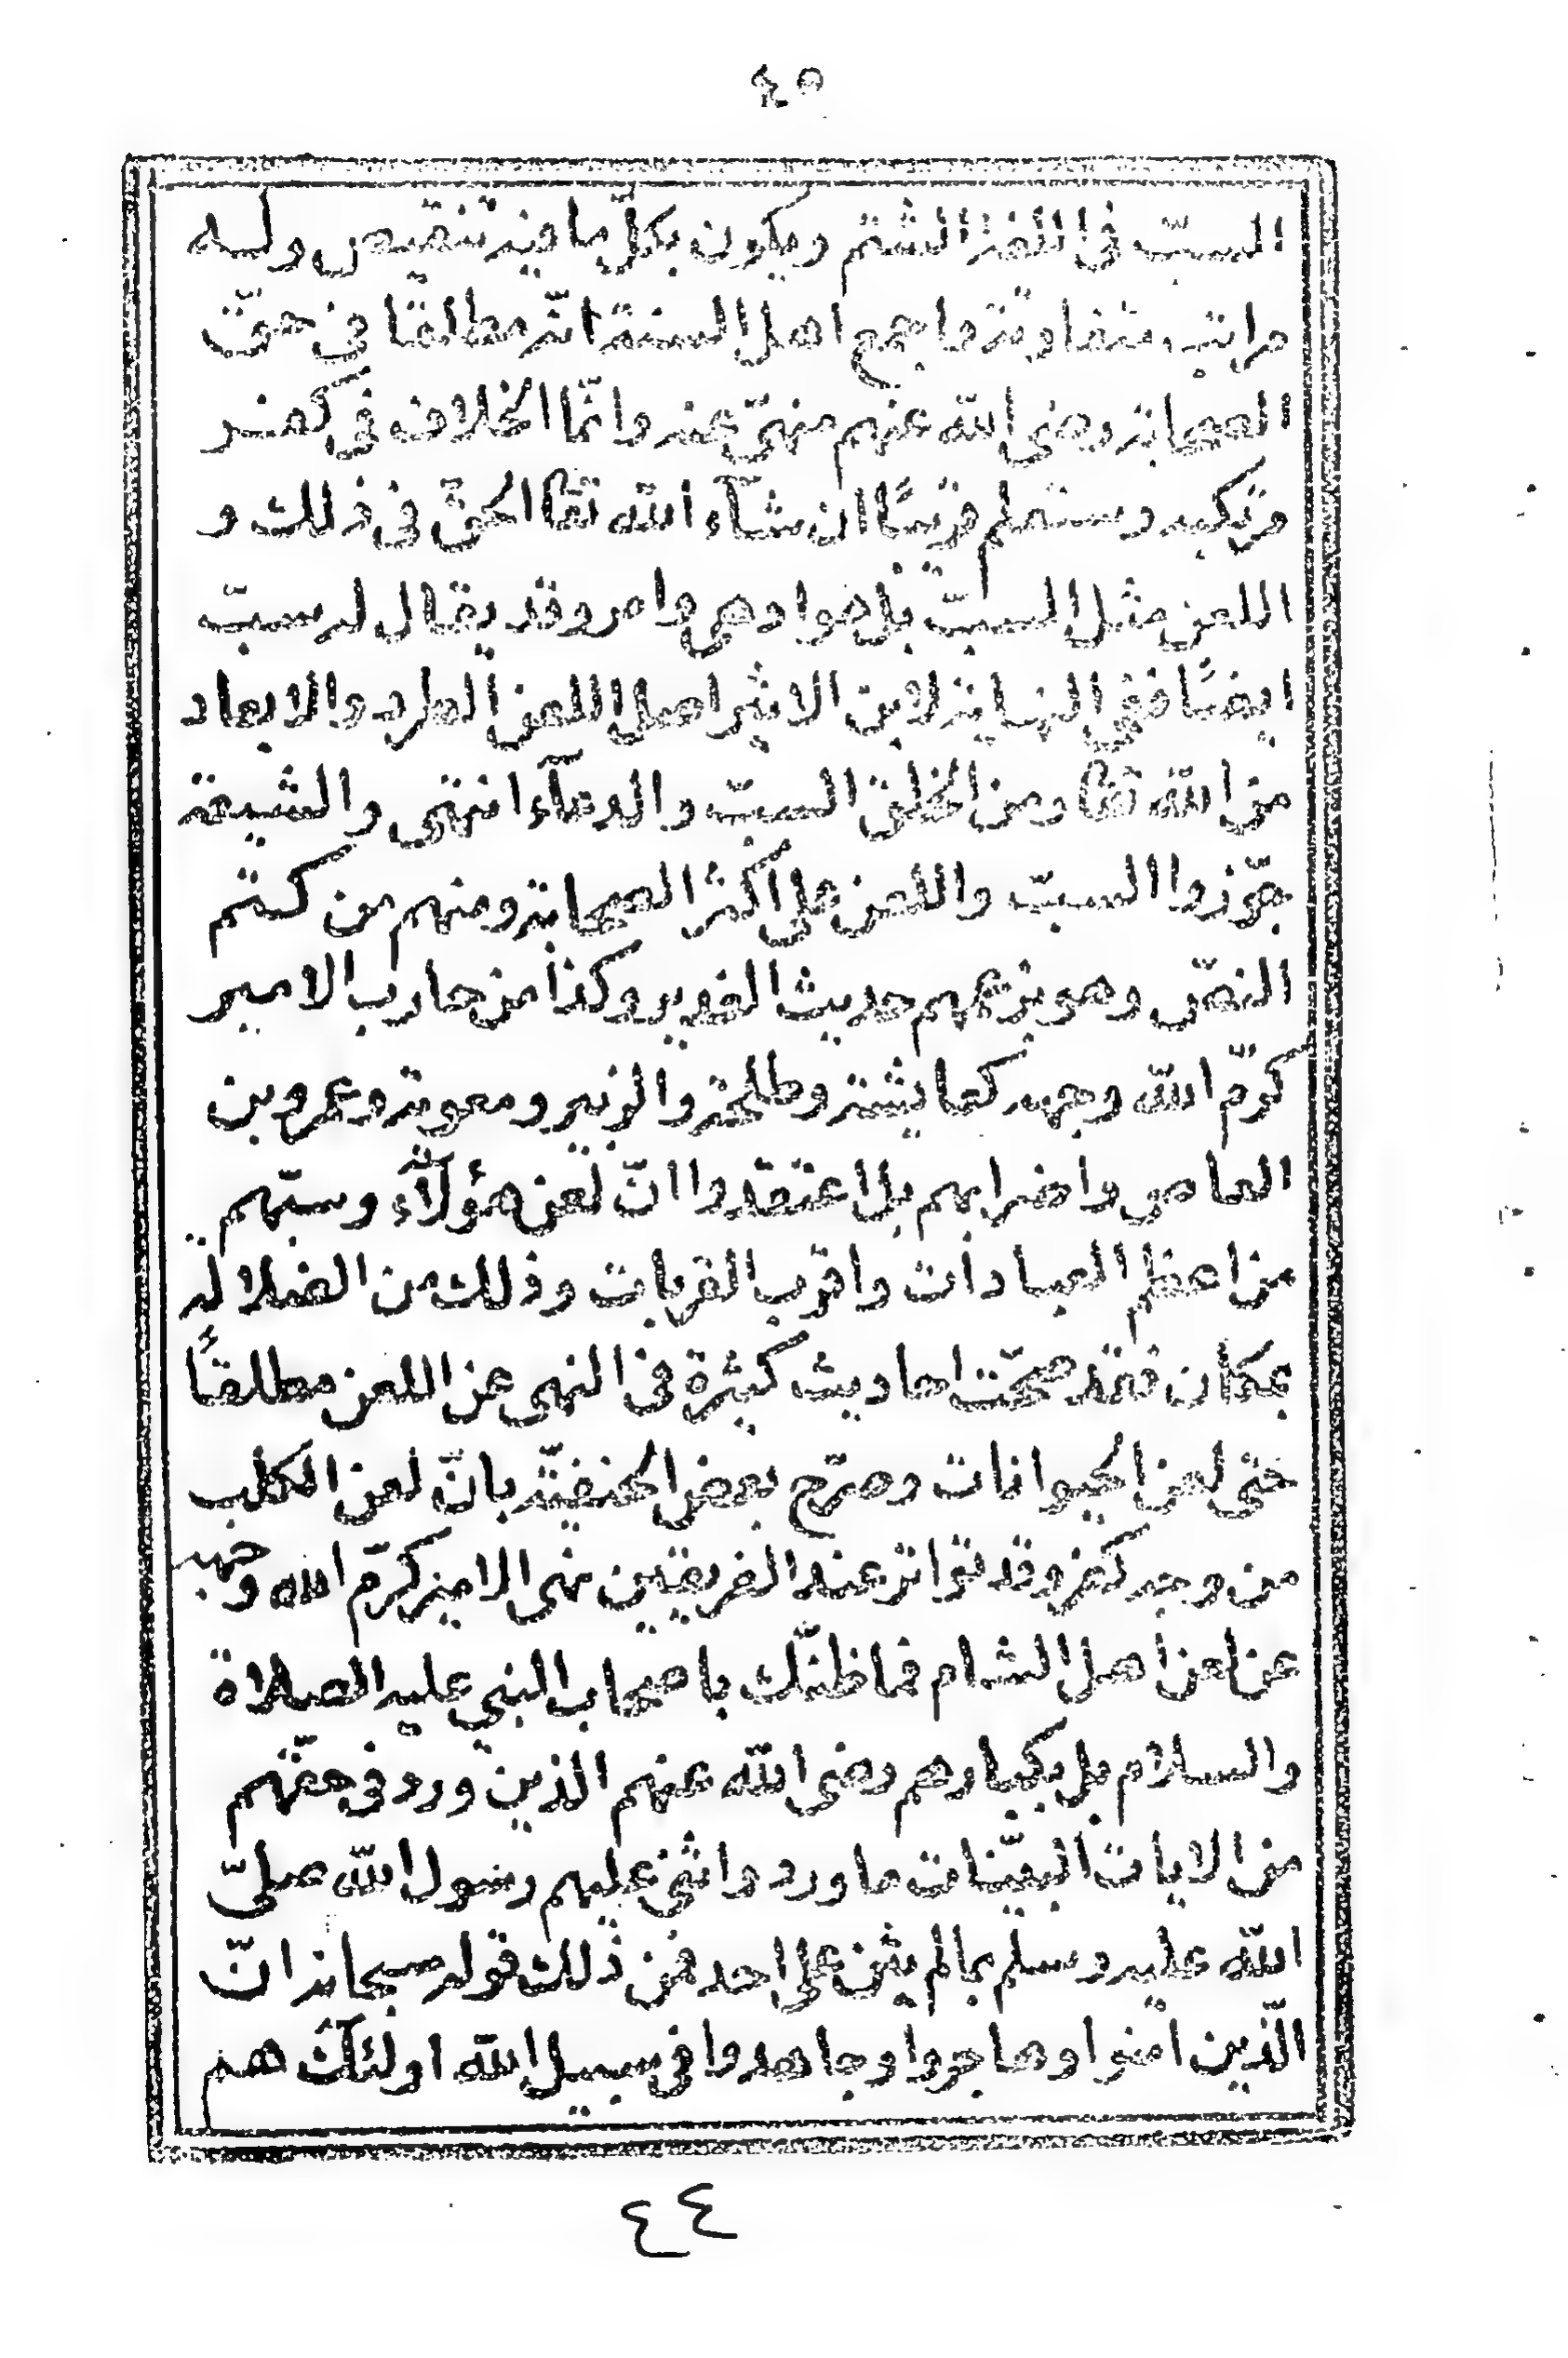 ٤٥
السبّ في اللغة الشتم ويكون بكلّ ما فيه تنقيص وله
مراتب متفاوتة واجمع اهل السنة انّه مطلقًا في حقّ
الصحابة رضي الله عنهم منهيّ عنه وانّما الخلاف في كفر
مرتكبه وستعلم قريبًا ان شآء الله تعا الحقّ في ذلك و
اللعن مثل السبّ بل هو ادهى وامر وقد يقال له سبّ
ايضًا ففي النهاية لابن الاثير اصل اللعن الطرد والابعاد
من الله تعا ومن الخلق السبّ والدعآء انتهى والشيعة
جوّزوا السبّ واللعن على اكثر الصحابة ومنهم من كتم
النصّ وهو بزعمهم حديث الغدير وكذا من حارب الامير
كرّم الله وجهه كعايشة وطلحة والزبير ومعوية وعمرو بن
العاص واضرابهم بل اعتقدوا انّ لعن هؤلآء وسبّهم
من اعظم العبادات واقرب القربات وذلك من الضلالة
بمكان فقد صحّت احاديث كثيرة في النهي عن اللعن مطلقًا
حتى لعن الحيوانات وصرّح بعض الحنفيّة بانّ لعن الكلب
من وجه كفر وقد تواتر عند الفريقين نهى الامير كرّم الله وجهه
عن لعن اهل الشام فما ظنّك باصحاب النبي عليه الصلاة
والسلام بل بكبارهم رضي الله عنهم الذين ورد في حقّهم
من الايات البيّنات ما ورد واثنى عليهم رسول الله صلىّ
الله عليه وسلم بما لم يثن على احد فمن ذلك قوله سبحانه انّ
الّذين امنوا وهاجروا وجاهدوا في سبيل الله اولئك هم
٤٤